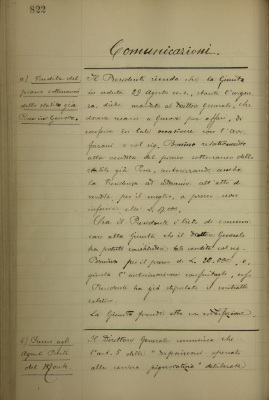 822
Comunicazioni.
a) Vendita del
piano sotterraneo
dello stabile già
Il Presidente ricorda che la Giunta
in seduta 29 Agosto u.s., stante l'urgen-
za, diede mandato al Direttore Generale, che
doveva recarsi a Genova per affari, di
conferire in tale occasione con l'Avv.
e col sig. Bonino relativamente
alla vendita del piano sotterraneo dello
stabile già autorizzando anche
la Presidenza ad all'atto di
vendita, per il meglio, a prezzo non
inferiore alle L.
Ora il Presidente è lieto di comuni-
care alla Giunta che il Direttore Generale
ha potuto concludere la vendita col sig.
Bonino per il prezzo di L. 20.000, e,
giusta l'autorizzazione conferitagli, esso
Presidente ha già stipulato il contratto
relativo.
La Giunta prende atto con soddisfazione.
b) Premi agli
Agenti
del
Il Direttore Generale comunica che
l'art. 5 delle "disposizioni speciali
alle deliberate